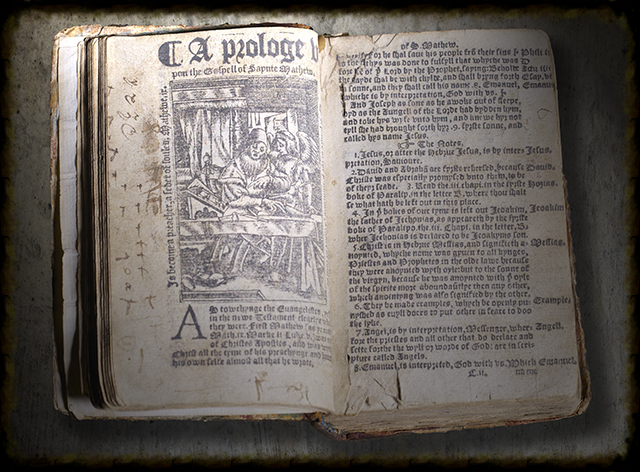 ¶ A prologe v
pon the Gospell of Saynte Mathew.
As towchynge the Euangelistes
in the newe Testament clearly
they were. First Mathew
Mark .ii. Marke iii Luke
of Christes Apostles, and was
Christ all the tyme of his preachynge and
his own selfe almost all that he wrote,
of S. Mathew.
for he shal saue his people frō their sins
was done to fulfyll that whyche was
by the Prophet, saying: Beholde
shal be with chylde, and shall bryng forth
sonne, and they shall call his name .8. Emanuel,
whiche is by interpretation, God with vs.
And Joseph as sone as he awoke out of sleepe,
dyd as the Aungell of the Lorde had bydden hym
and toke hys wyfe vnto hym, and knew hyr not
tyll she had brought forth hyr .9. fyrste sonne, and
called hys name Jesus.
☞ The Notes.
1. Jesus, or after the Hebrue Jesua, is by inter- Jesus,
pretation, Sauioure.
2. Dauid and Abrahā are fyrste rehersed, because Dauid.
Christe was especially promysed vnto them, to be
of theyr seade. 3. Read the .iii. chap. in the fyrste
boke of Paralip. in the letter B, where thou shalt
se what hath be left out in this place.
4. In þ bokes of our tyme is left out Joachim, Joachim
the father of Jechonias, as appeareth by the fyrste
boke of Paralipo. the .iii. Chapt. in the letter, B.
wher Jechonias is declared to be Joachyms son.
5. Christ is in Hebrue Messias, and signifieth a- Messias.
noynted, whyche name was gyuen to all kynges,
Priestes and Prophetes in the olde lawe because
they were anoynted wyth oyle: but to the sonne of
the virgyn, because he was anoynted with þ oyle
of the spirite more aboundauntlye then any other,
which anoynting was also signified by the other.
6. They be made examples, which be openly pu- Example.
nyshed as euyll doers to put other in feare to doo
the lyke.
7. Angel, is by interpretation, Messenger, wher- Angell.
fore the priestes and all other that do declare and
sette forthe the wyll or worde of God: are in scrip
ture called Angels.
8. Emanuel, is interpreted, God with vs. Which Emanuel.
C.ii.